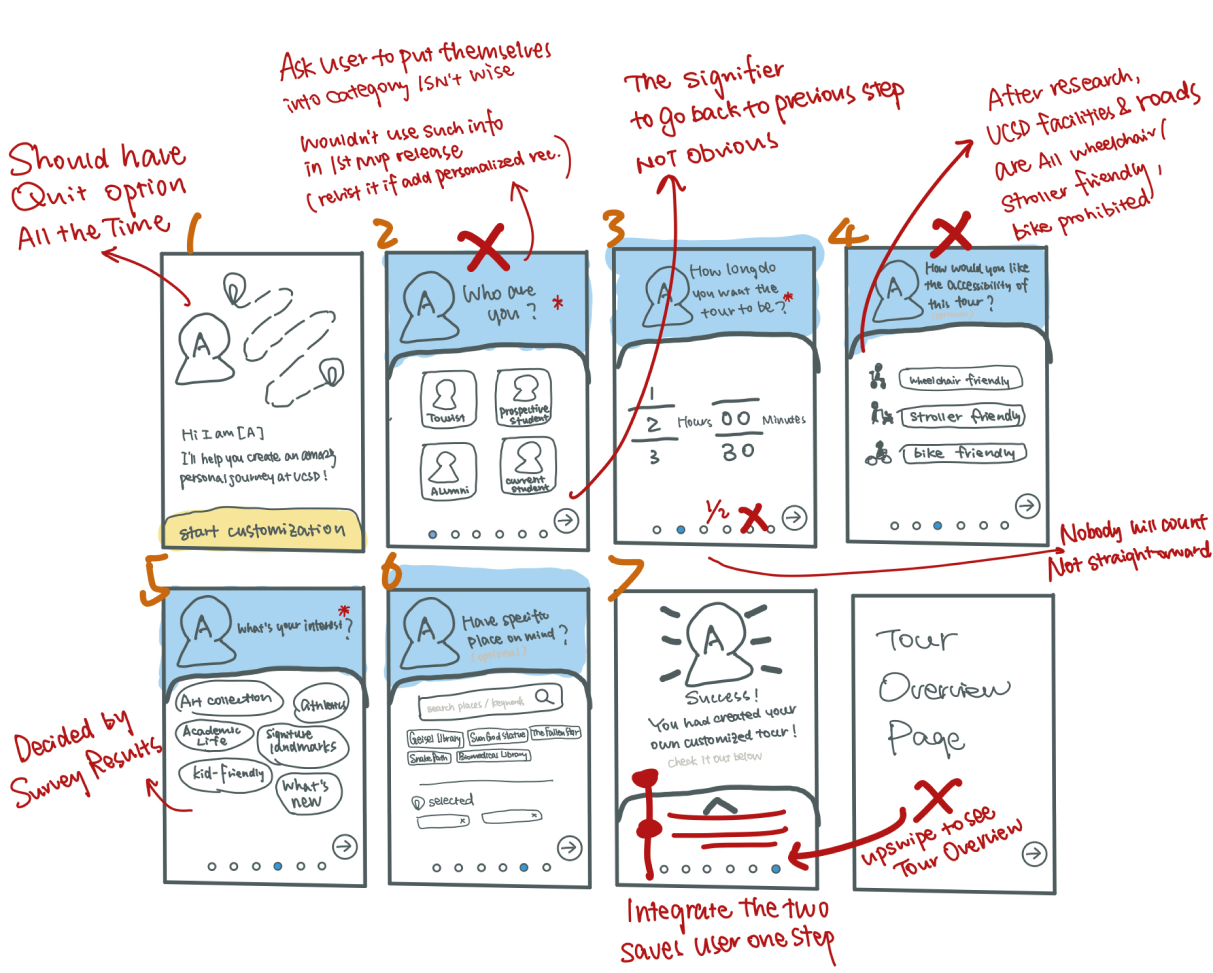 Ask user to put themselves
into category ISN't wise
wouldn't use such info
in 1st MVP release
(revisit it if add personalized rec.)
The signifier
to go back to previous step
NOT Obvious
After research,
UCSD facilities & roads
are All wheelchair /
stroller friendly,
bike prohibited
Should have
Quit option
All the Time
1
A
Hi I am [A]
I'll help you create an amazing
personal journey at UCSD!
start customization
2
A
Who are
you? *
Tourist
Prospective
student
Alumni
current
student
3
A
How long do
you want the
tour to be? *
1
2 Hours 00 Minutes
3 30
1/2
4
A
How would you like
the accessibility of
this tour?
(optional)
wheelchair friendly
stroller friendly
bike friendly
Nobody will count
Not straightforward
5
A
What's your interest? *
Art collection
Athletics
Academic
Life
Signiture
landmarks
kid-friendly
What's
new
Decided by
Survey Results
6
A
Have specific
place on mind?
(optional)
search places / keywords
Geisel Library
Sun God Statue
The Fallen Star
Snake Path
Biomedical Library
selected
x
x
7
A
Success!
You had created your
own customized tour!
check it out below
Integrate the two
saves user one step
Tour
Overview
Page
upswipe to see
Tour Overview